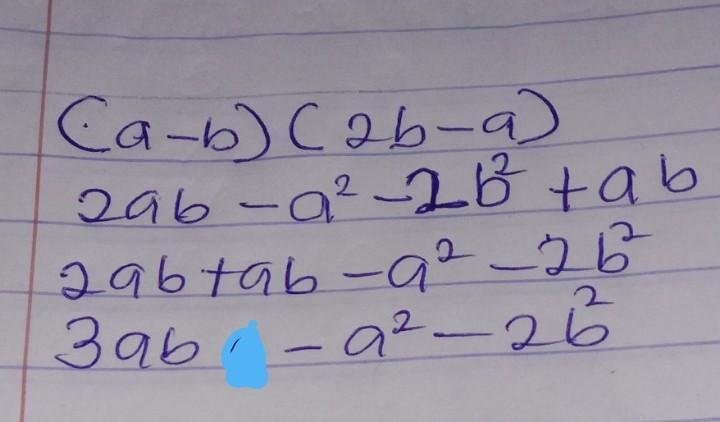 (a-b)(2b-a)
2ab-a²-2b²+ab
2ab+ab-a²-2b²
3ab -a²-2b²